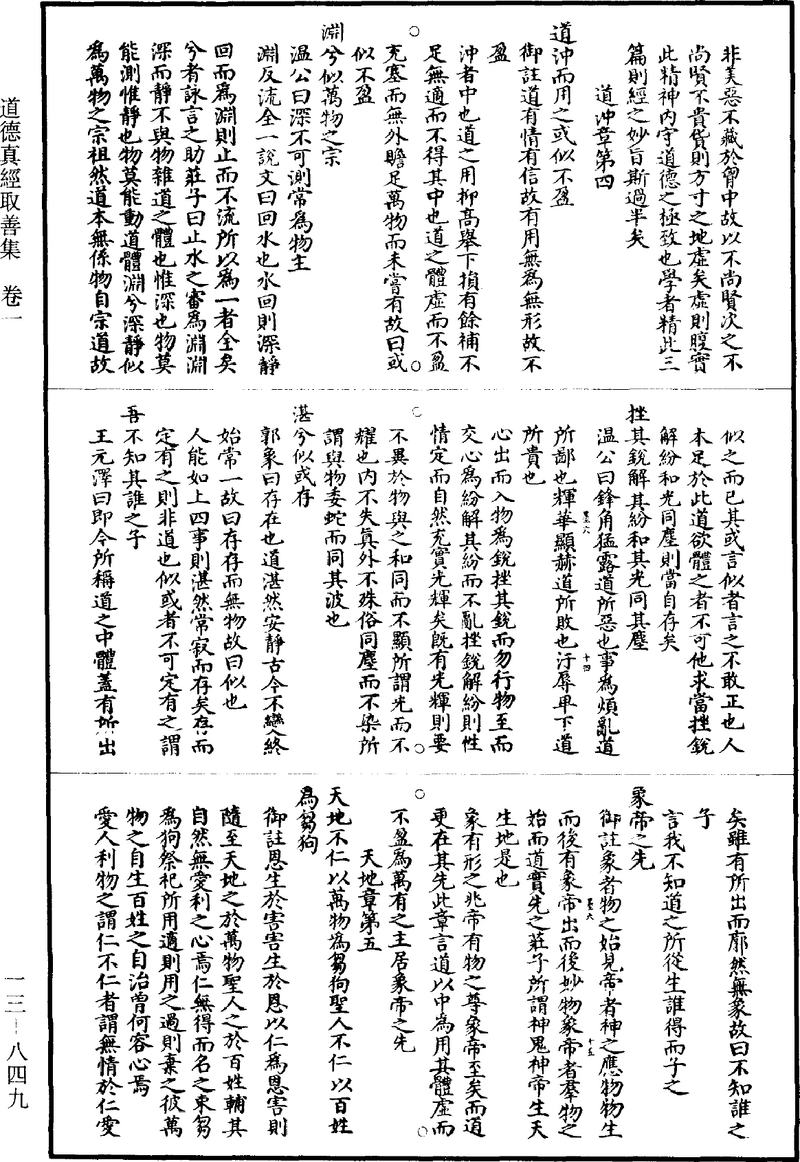 道德真經取善集　卷一
非美惡不藏於胷中故以不尚賢次之不
尚賢不貴貨則方寸之地虛矣虛則腹實
此精神内守道德之極致也學者精此三
篇則經之妙旨斯過半矣
道沖章第四
道沖而用之或似不盈
御註道有情有信故有用無為無形故不
盈
沖者中也道之用抑高舉下損有餘補不
足無適而不得其中也道之體虛而不盈
充塞而無外贍足萬物而未嘗有故曰或
似不盈
淵兮似萬物之宗
温公曰深不可測常為物主
淵反流全一說文曰回水也水回則深靜
回而為淵則止而不流所以為一者全矣
兮者詠言之助莊子曰止水之審為淵淵
深而靜不與物雜道之體也惟深也物莫
能測惟靜也物莫能動道體淵兮深靜似
為萬物之宗祖然道本無係物自宗道故
似之而已其或言似者言之不敢正也人
本足於此道欲體之者不可他求當挫銳
解紛和光同塵則當自存矣
挫其銳解其紛和其光同其塵
温公曰鋒角猛露道所惡也事為煩亂道
所鄙也輝華顯赫道所敗也汙辱卑下道
所貴也
心出而入物為銳挫其銳而勿行物至而
交心為紛解其紛而不亂挫銳解紛則性
情定而自然充實光輝矣旣有光輝則要
不異於物與之和同而不顯所謂光而不
耀也内不失真外不殊俗同塵而不染所
謂與物委蛇而同其波也
湛兮似或存
郭象曰存在也道湛然安靜古今不變終
始常一故曰存存而無物故曰似也
人能如上四事則湛然常寂而存矣存而
定有之則非道也似或者不可定有之謂
吾不知其誰之子
王元澤曰即今所稱道之中體蓋有所出
矣雖有所出而廓然無象故曰不知誰之
子
言我不知道之所從生誰得而子之
象帝之先
御註象者物之始見帝者神之應物物生
而後有象帝出而後妙物象帝者羣物之
始而道實先之莊子所謂神鬼神帝生天
生地是也
象有形之兆帝有物之尊象帝至矣而道
更在其先此章言道以中為用其體虛而
不盈為萬有之主居象帝之先
天地章第五
天地不仁以萬物為芻狗聖人不仁以百姓
為芻狗
御註恩生於害害生於恩以仁為恩害則
隨至天地之於萬物聖人之於百姓輔其
自然無愛利之心焉仁無得而名之束芻
為狗祭祀所用適則用之過則棄之彼萬
物之自生百姓之自治曾何容心焉
愛人利物之謂仁不仁者謂無情於仁愛
一三－八四九